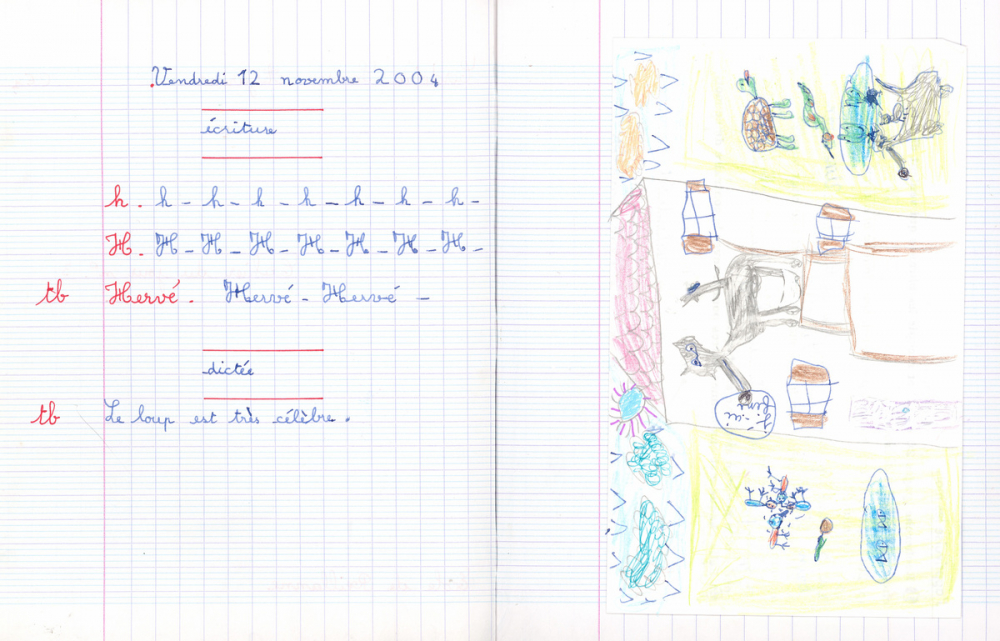 Vendredi 12 novembre 2004
écriture
h. h - h - h - h - h - h - h -
H. H - H - H - H - H - H - H -
tb Hervé. Hervé - Hervé -
dictée
tb Le loup est très célèbre.
J'ai